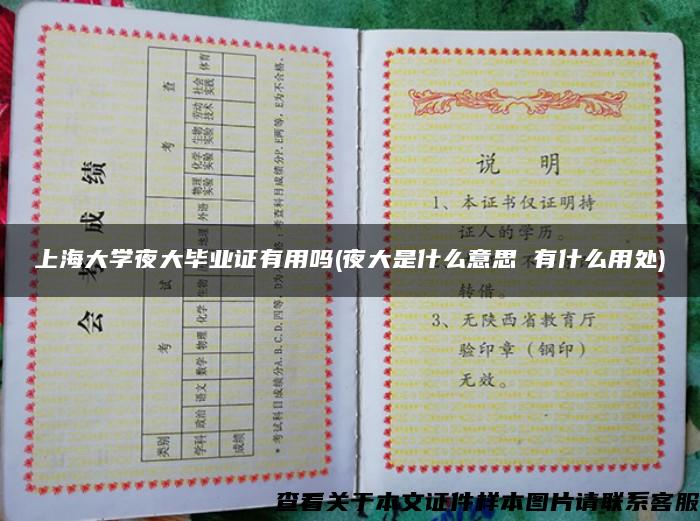 会考成绩
类别 考试 考查
学科 政治 语文 数学 物理 化学 生物 地理 外语 物理实验 化学实验 生物实验 劳动技术 社会实践 体育
成绩
*考试科目成绩分A、B、C、D,四等,D为不 考查科目成绩分P、E两等,E为不合格。
说 明
1、本证书仅证明持
证人的学历。
转借。
3、无陕西省教育厅
验印章(钢印)
无效。
上海大学夜大毕业证有用吗(夜大是什么意思 有什么用处)
查看关于本文证件样本图片请联系客服